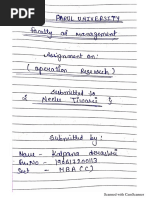 PARUL UNIVERSITY
Faculty of management
Assignment on:
( operation Research )
Submitted to
: Neelu Tiwari :
Submitted by:
Name - Kalpana
Sect - MBA (C)
Scanned with CamScanner